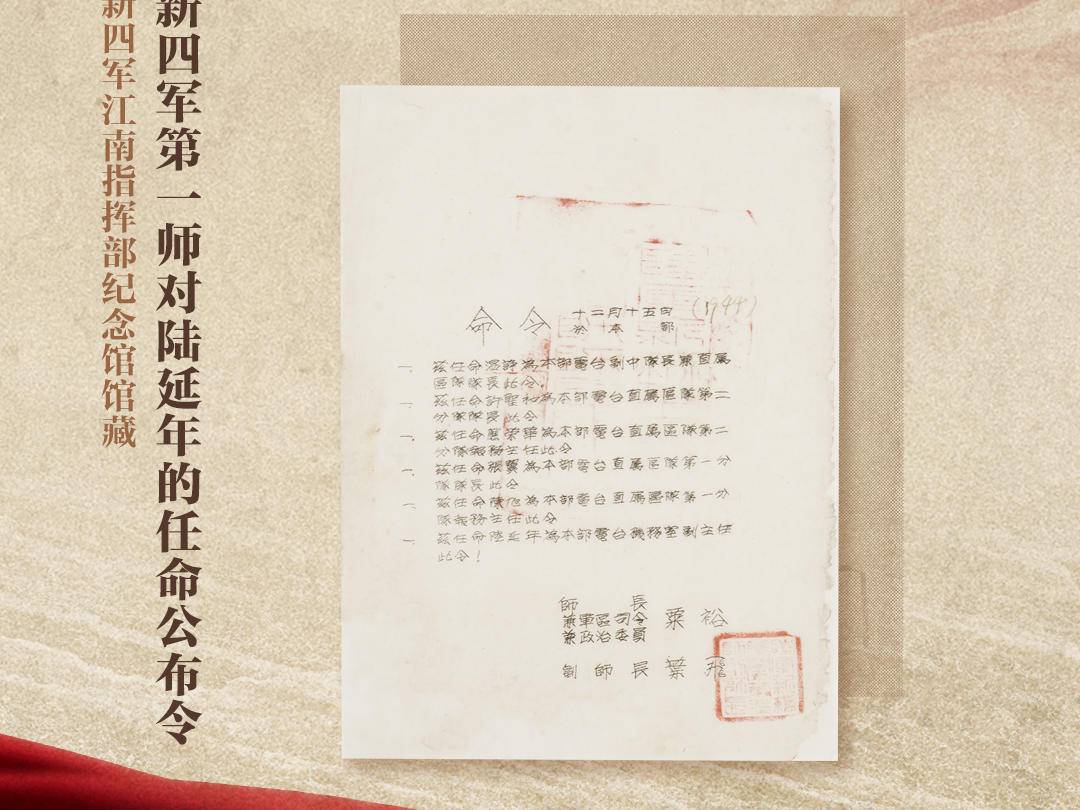 新四军第一师对陆延年的任命公布令
新四军江南指挥部纪念馆馆藏
命令
十二月十五日
於本部
(1944)
一、兹任命 為本部電台副中隊長兼直属
區隊隊長此令。
一、兹任命許聖和為本部電台直属區隊第二
分隊隊長此令
一、兹任命 榮華為本部電台直属區隊第二
分隊報務主任此令
一、兹任命張翼為本部電台直属區隊第一分
隊隊長此令
一、兹任命陳旭為本部電台直属區隊第一分
隊報務主任此令
一、兹任命陸延年為本部電台機務室副主任
此令!
師長
兼軍區司令
兼政治委員
粟裕
副師長葉飛